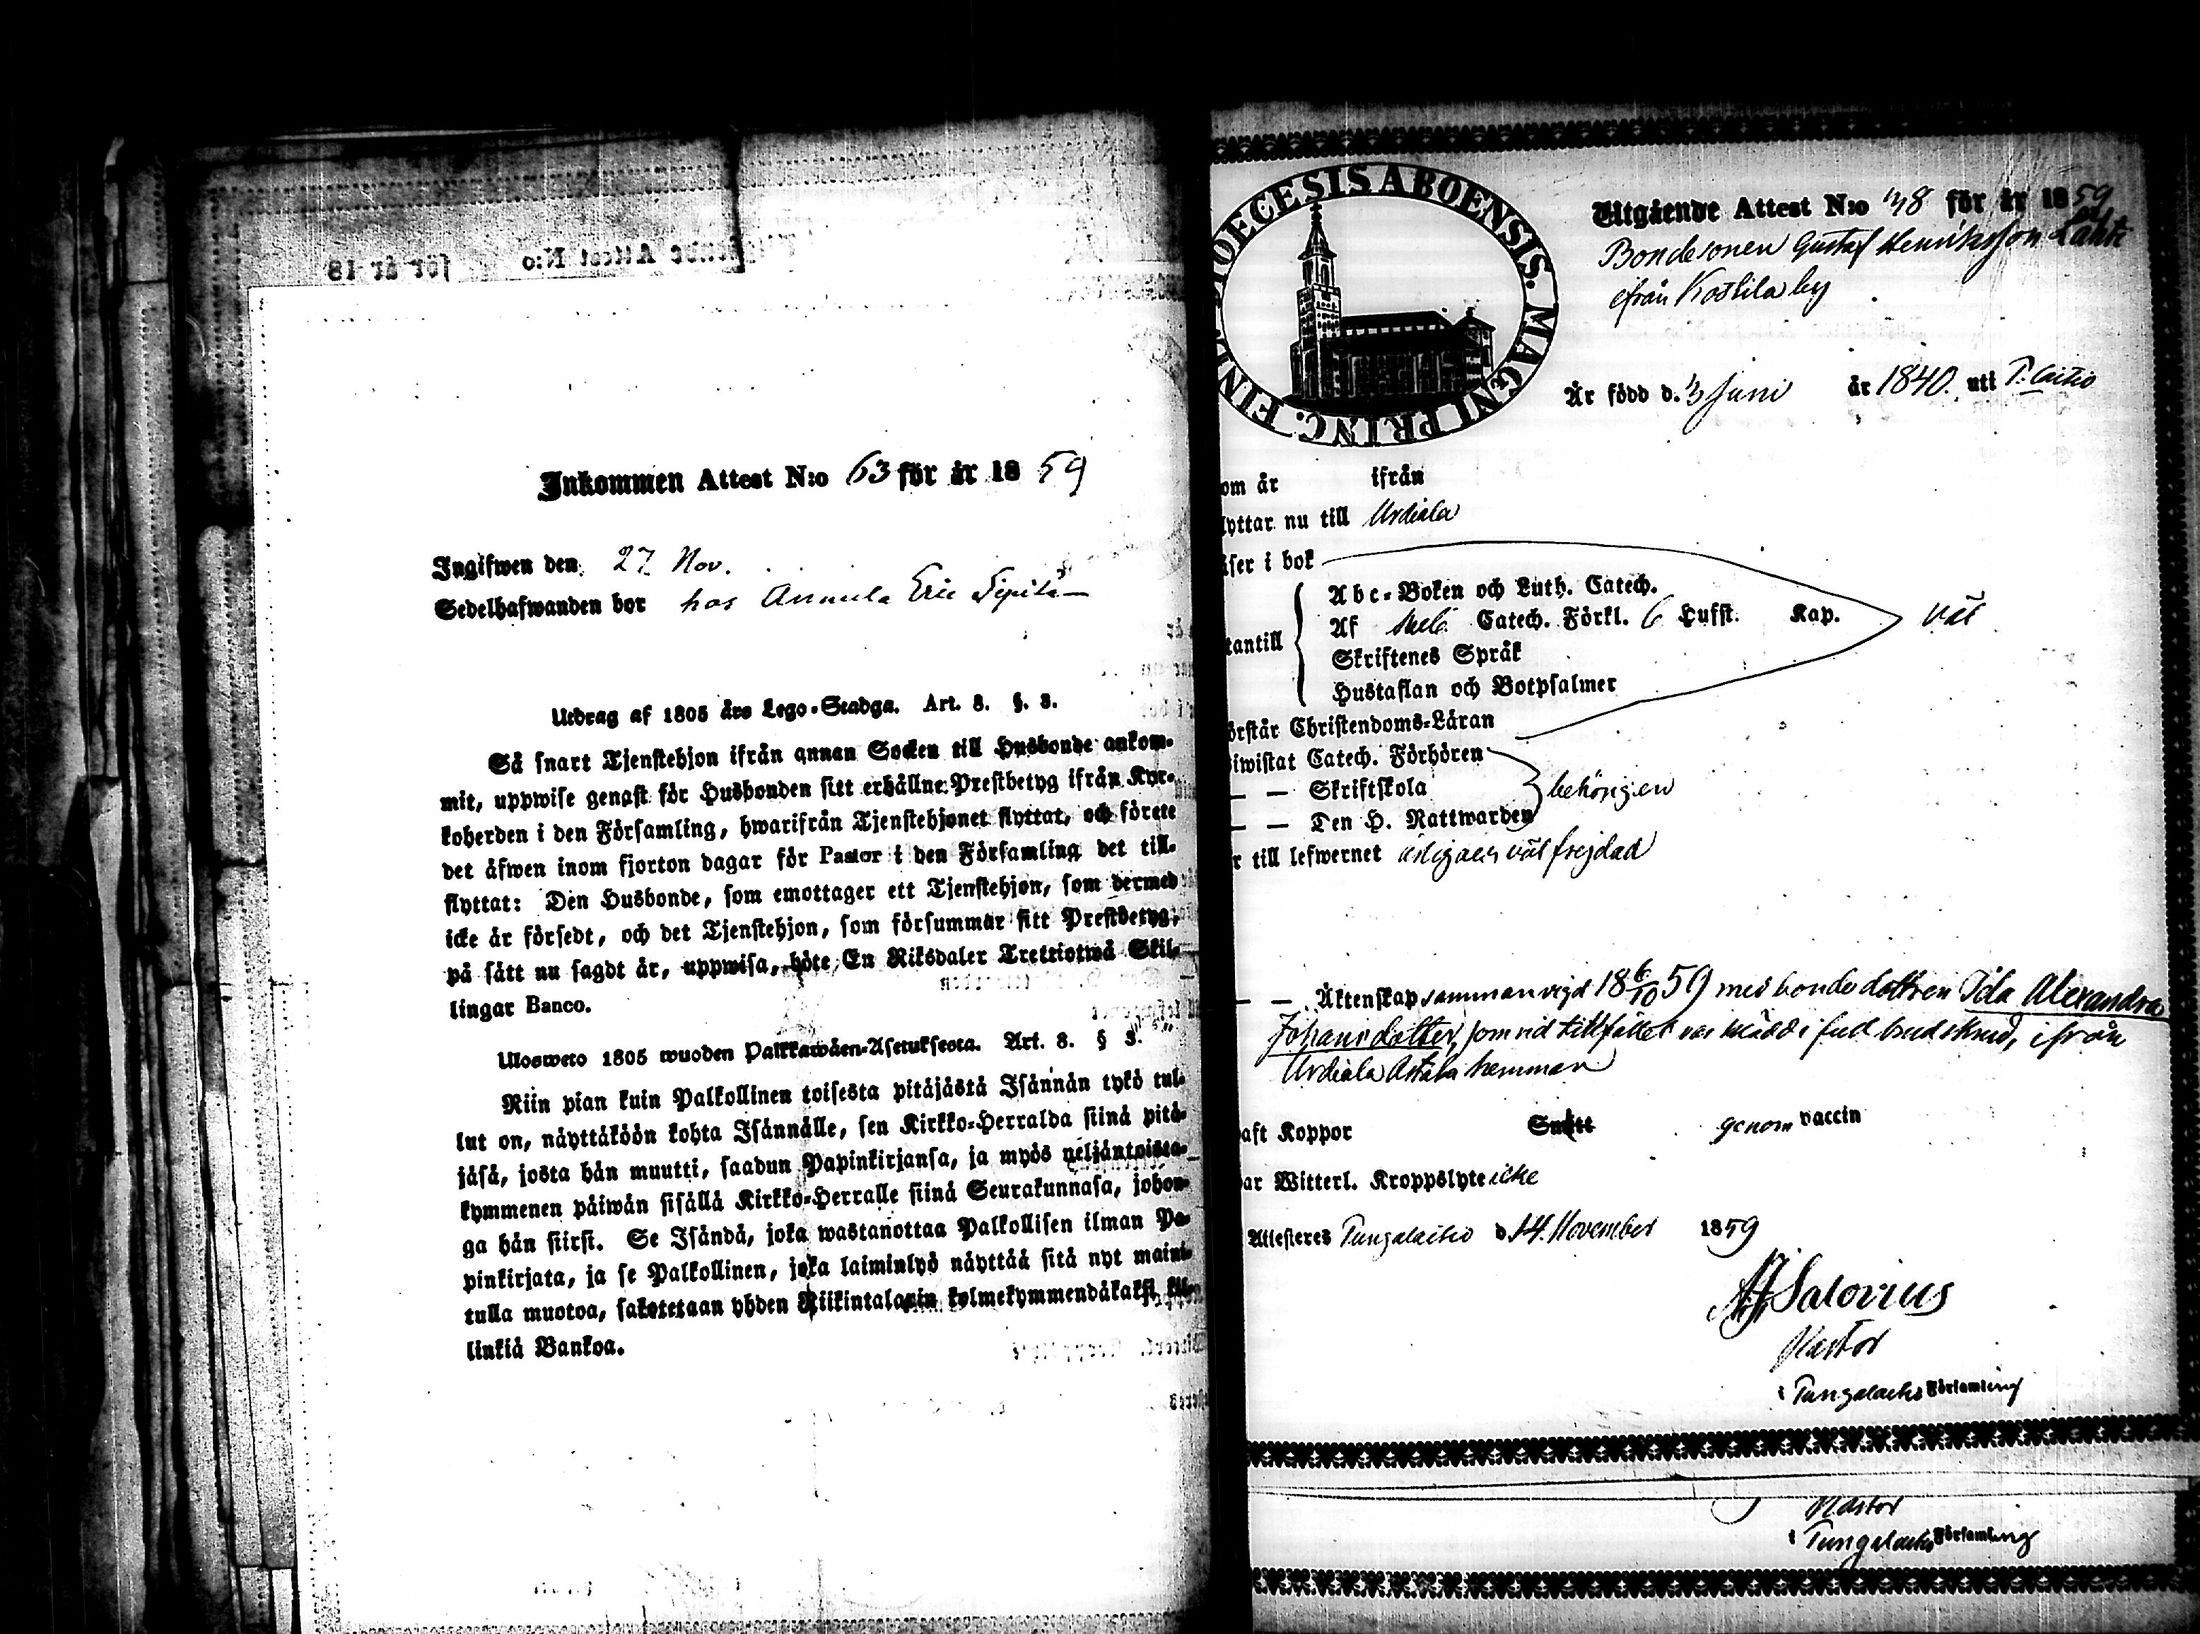 Inkommen Attest N:o 63 för år 1859
Ingifwen den 27 Nov.
Sedelhafwanden bor hos Annula Eric Sipilä
Utdrag af 1805 års Lego-Stadga. Art. 8. §. 3.
Så snart Tjenstehjon ifrån annan Socken till Husbonde ankom-
mit, uppwise genast för Husbonden sitt erhållne Prestbetyg ifrån Kyr-
koherden i den Församling, hwarifrån Tjenstehjonet flyttat, och förete
det äfwen inom fjorton dagar för Pastor i den Församling det till-
flyttat: Den Husbonde, som emottager ett Tjenstehjon, som dermed
icke är försedt, och det Tjenstehjon, som försummar sitt Prestbetyg,
på sätt nu sagdt är, uppwisa, böte En Riksdaler Trettiotwå Skil-
lingar Banco.
Ulosweto 1805 wuoden Palkkawäen-Asetuksesta. Art. 8. § 3.
Niin pian kuin Palkollinen toisesta pitäjästä Isännän tykö tul-
lut on, näyttäköön kohta Isännälle, sen Kirkko-Herralda siinä pitä-
jäsä, josta hän muutti, saadun Papinkirjansa, ja myös neljäntoista-
kymmenen päiwän sisällä Kirkko-Herralle siinä Seurakunnasa, johon-
ga hän siirsi. Se Isändä, joka wastanottaa Palkollisen ilman Pa-
pinkirjata, ja se Palkollinen, joka laiminlyö näyttää sitä nyt maini-
tulla muotoa, sakotetaan yhden Riikintalarin kolmekymmendäkaksi kil-
linkiä Bankoa.
DIOECESIS ABOENSIS. MAGNI PRINC. FINL.
Utgående Attest N:o 48 för år 1859
Bondesonen Gustaf Henriksson Lahti
ifrån Kostila by
Är född d. 3 Juni år 1840. uti P:laitio
om år ifrån
lyttar nu till Urdiala
äser i bok
Abc-Boken och Luth. Catech.
tantill Af Sveb. Catech. Förkl. 6 Hufst. Kap. väl
Skriftenes Språk
Hustaflan och Botpsalmer
örstår Christendoms-Läran
iwistat Catech. Förhören
— — Skriftskola behörigen
— — Den H. Nattwarden
r till lefwernet ärligaen väl frejdad
— — Äktenskap sammanvigd 18 6/10 59 med bonde dottren Ida Alexandra
Johansdotter, som vid tillfället var klädd i full brudskrud, ifrån
Urdiala Astala hemman
aft Koppor Smått genom vaccin
ar Witterl. Kroppslyte icke
Attesteres Pungalaitio d. 14. November 1859
Salovius
Pastor
i Pungalaitio Församling
Pastor
i Pungalaitio Församling